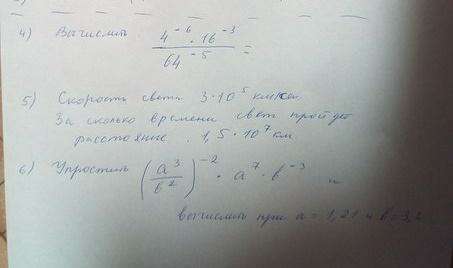 4) Вычислить
4⁻⁶ · 16⁻³
64⁻⁵ =
5) Скорость света 3·10⁵ км/сек.
За сколько времени свет пройдет
расстояние 1,5·10⁷ км
6) Упростить (a³/b²)⁻² · a⁷ · b⁻³ и
вычислить при a = 1,21 и b = 3,